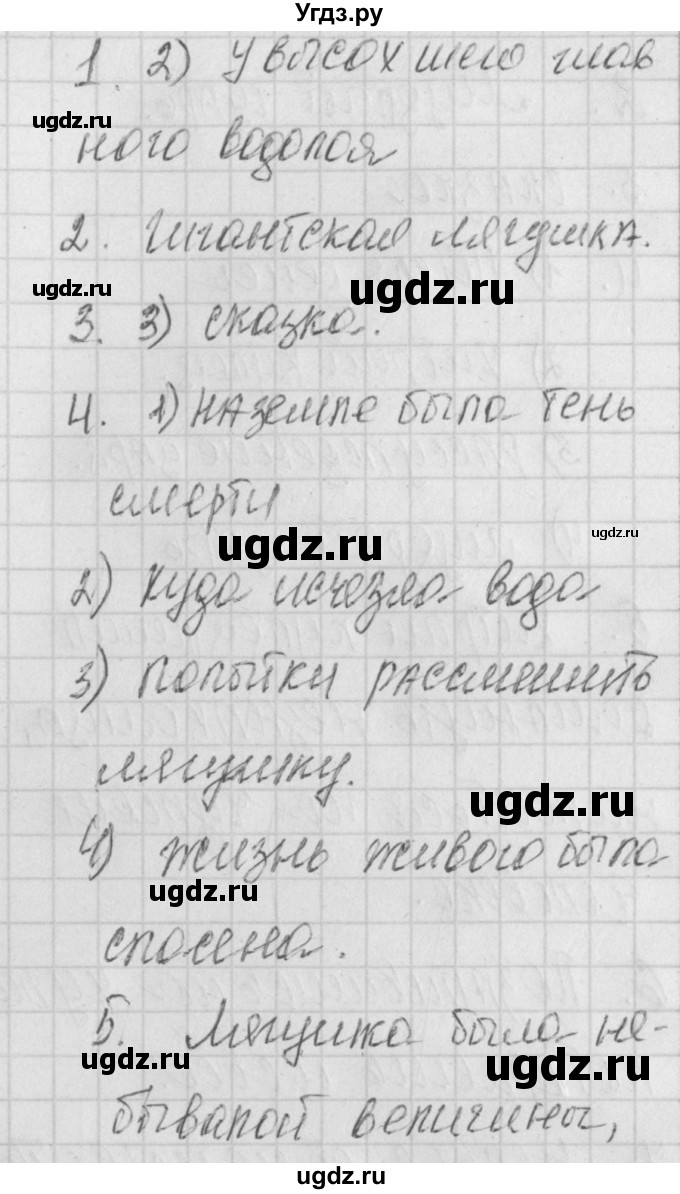 Угдз.ру
1. 2) У высохшего глав
ugdz.ru
ного водопоя
2. Гигантская лягушка.
ugdz.ru
ugdz.ru
3. 3) сказка.
4. 1) На земле была тень
смерти
ugdz.ru
ugdz.ru
2) Куда исчезла вода
3) Попытки рассмешить
лягушку.
ugdz.ru
4) жизнь живого была
ugdz.ru
спасена.
5. Лягушка была не-
ugdz.ru
ugdz.ru
бывалой величины,
ugdz.ru